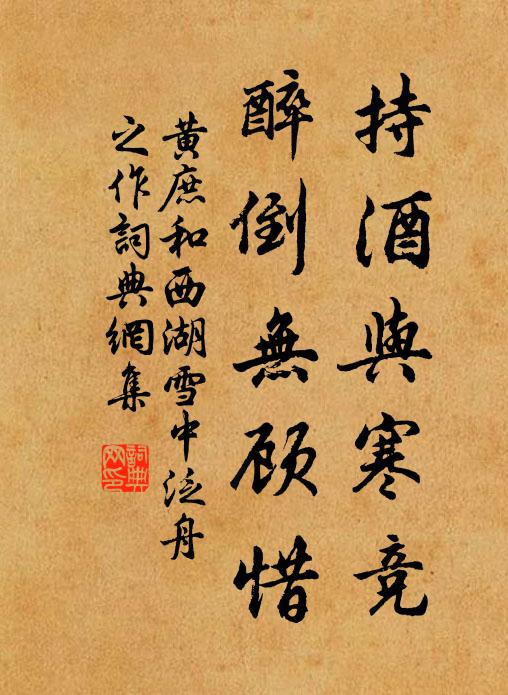 持酒與寒競
醉倒無顧惜
黃庶和西湖雪中泛舟
之作詞典網集
詞典網印